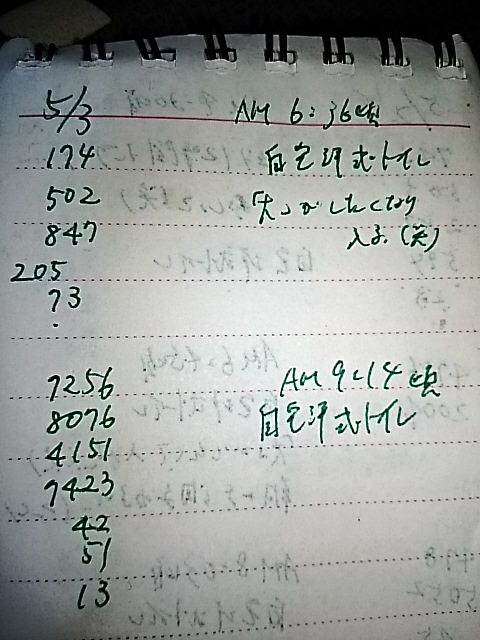 5/3 AM 6:36頃
174 自宅洋式トイレ
502 「大」がしたくなり
847 入る(笑)
205
73
7256 AM 9:14頃
8076 自宅洋式トイレ
4151
7423
42
51
13